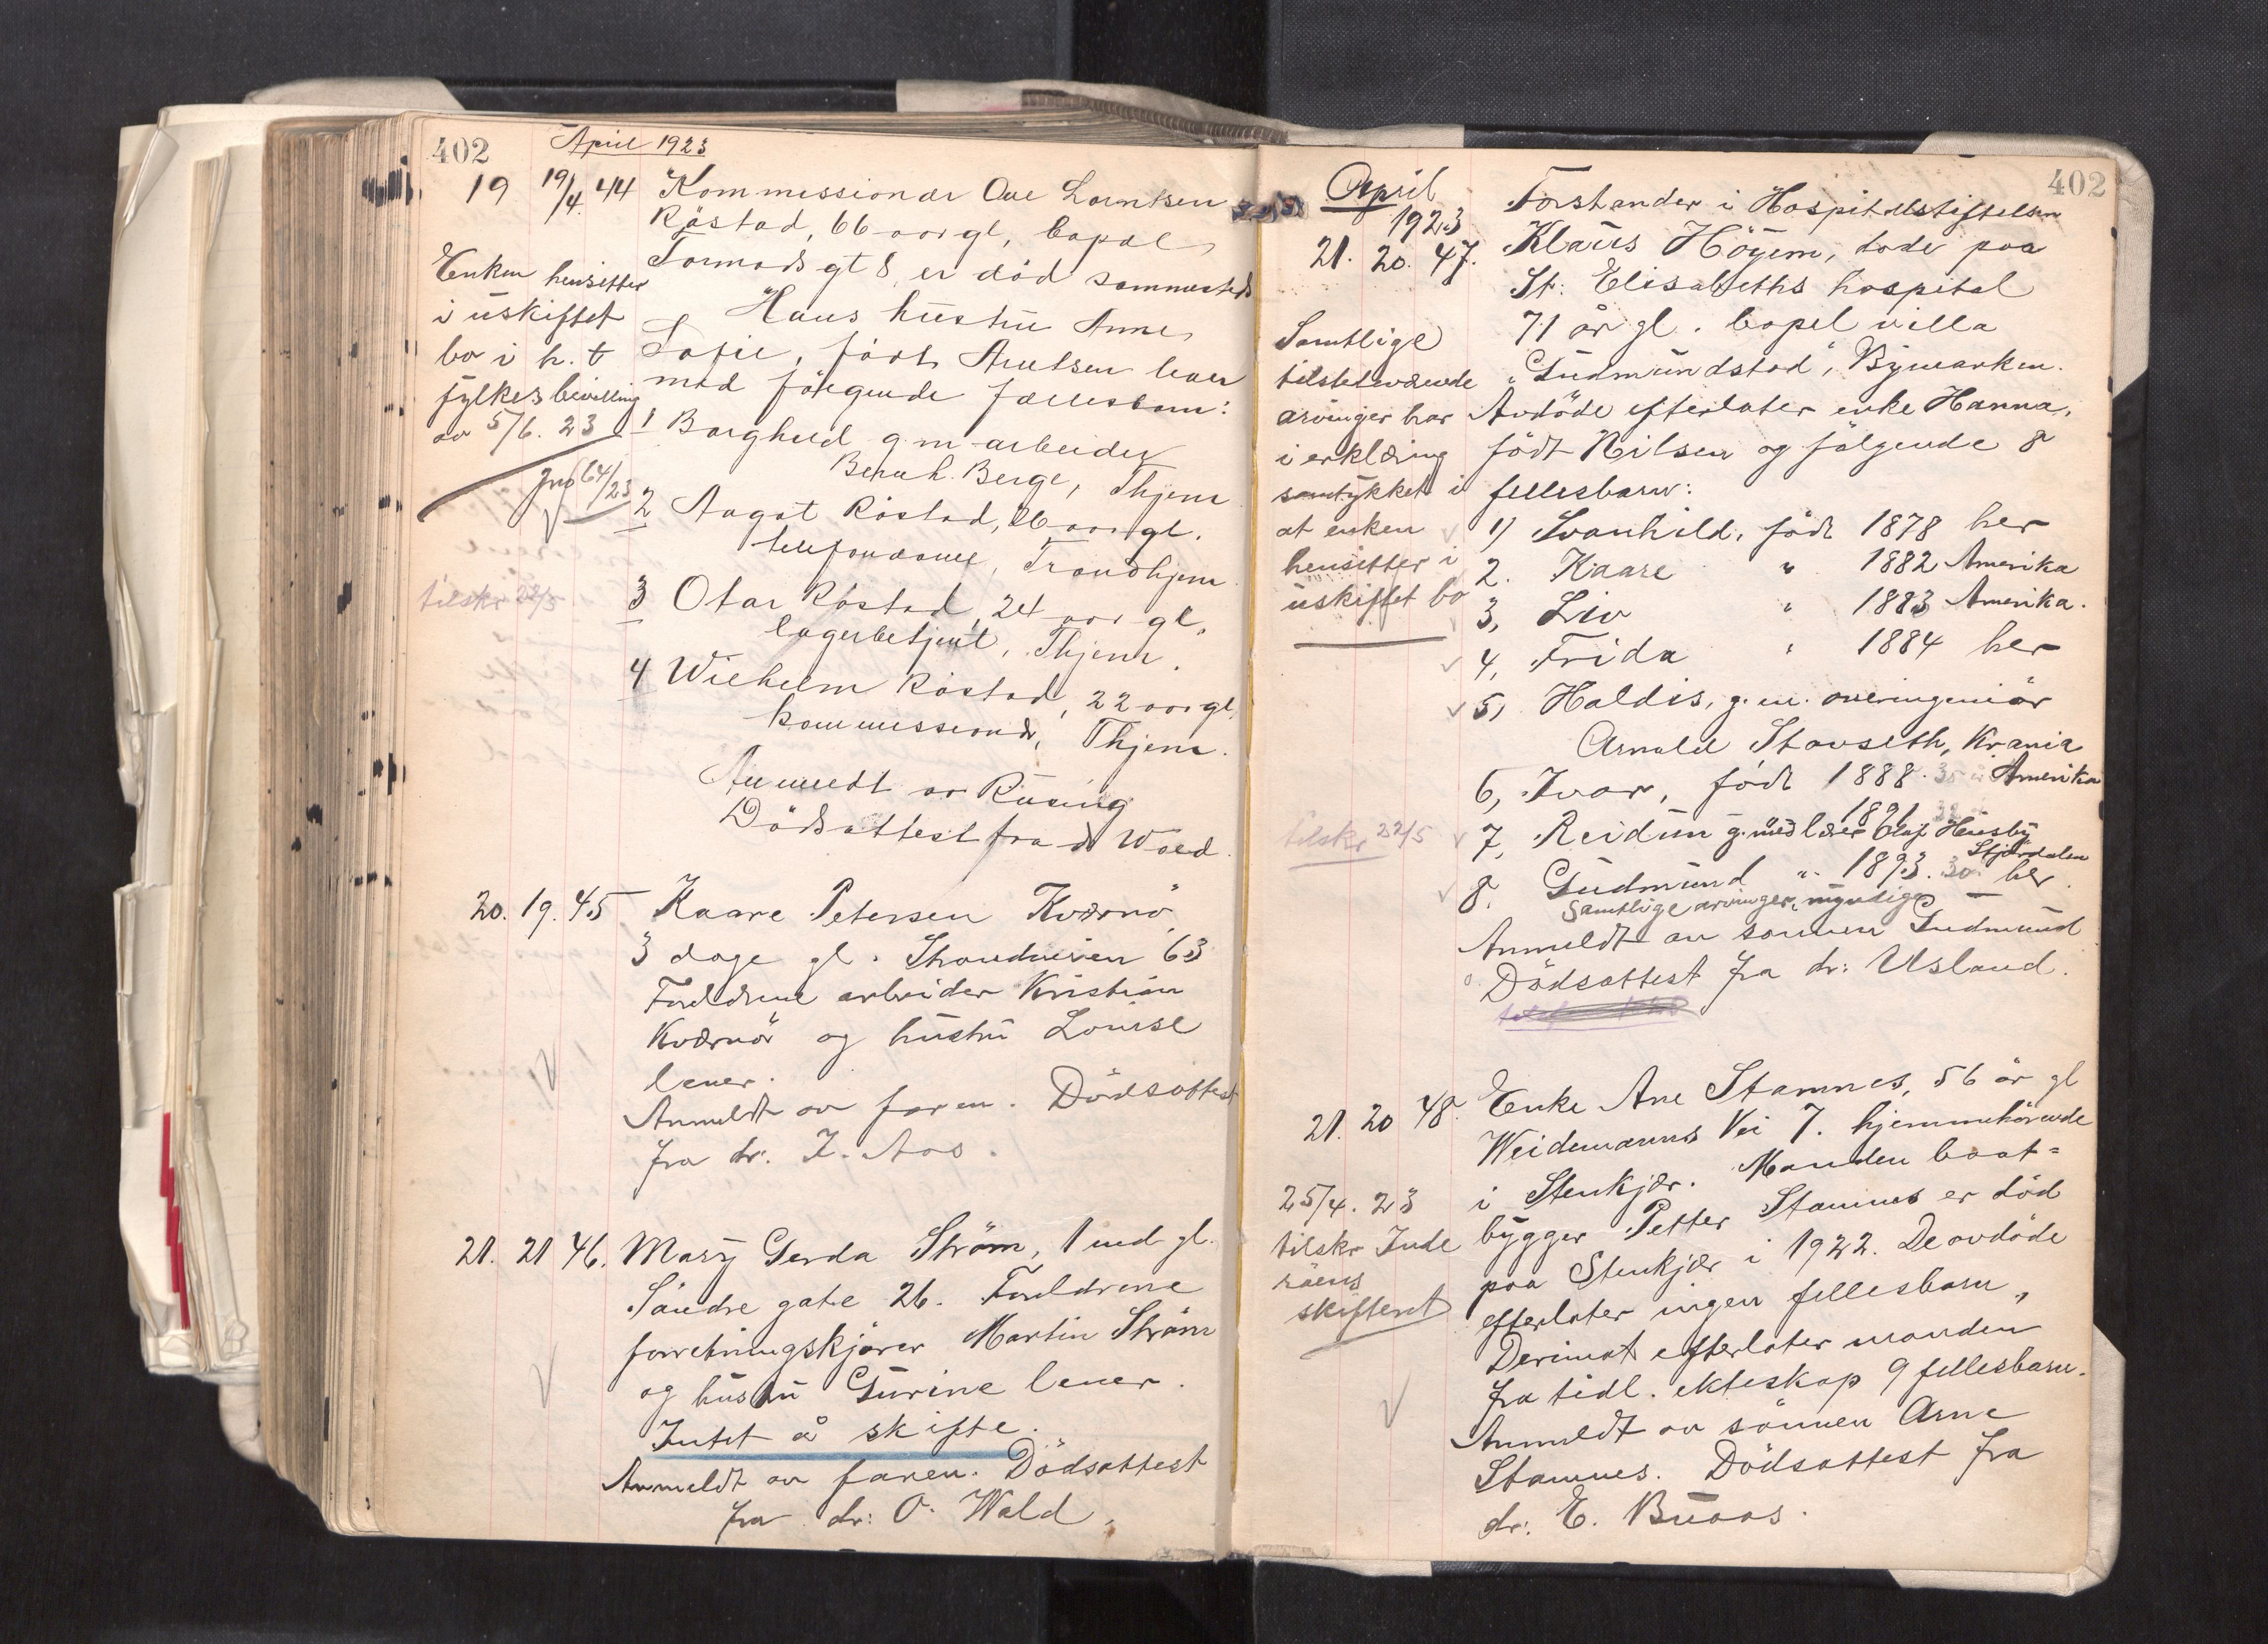 402 April 1923
19 19/4. 44 Kommissionær Ove Lorntsen
Röstad, 66 aar gl, bopæl
Tormods gt 8, er död sammesteds
Hans hustru Anne
Sofie, födt Arntsen lever
med fölgende fællesbarn:
Enken hensitter
i uskiftet
bo i h. t
fylkesbevilling
av 5/6. 23
Jno 64/23
1 Borghild g m arbeider
Bernh. Berge, Thjem
2 Aagot Röstad, 26 aar gl.
telefondame, Trondhjem
tilskr 22/5
3 Otar Röstad, 24 aar gl,
lagerbetjent, Thjem.
4 Wilhelm Röstad, 22 aar gl,
kommissionær, Thjem.
Anmeldt av Rusing
Dödsattest fra dr Wold.
20. 19. 45 Kaare Petersen Kværnö
3 dage gl. Strandveien 63
Foreldrene arbeider Kristian
Kværnö og hustru Lovise
lever.
Anmeldt av faren. Dödsattest
fra dr. I. Aas.
21. 21 46. Mary Gerda Ström, 1 md gl.
Söndre gate 26. Foreldrene
forretningskjörer Martin Ström
og hustru Gurine lever.
Intet å skifte.
Anmeldt av faren. Dödsattest
fra dr: O. Wold.
402
April
1923
21. 20. 47. Forstander i Hospitalstiftelsen
Klaus Höyem, döde paa
St: Elisabeths hospital
71 år gl. bopel villa
"Gudmundstad", Bymarken.
Avdöde efterlater enke Hanna,
födt Nilsen og fölgende 8
fellesbarn:
Samtlige
tilstedeværende
arvinger har
i erklæring
samtykket i
at enken
hensitter i
uskiftet bo
1) Svanhild, födt 1878 her
2. Kaare " 1882 Amerika
3, Liv " 1883 Amerika.
4, Frida " 1884 her
5, Haldis, g. m. overingeniör
Arnold Stavseth, Krania
6, Ivar, födt 1888. 35 Amerika
1891 32
tilskr 22/5
7, Reidun g. med lærer Olaf Heusby
Stjördalen
8. Gudmund " 1893. 30 her.
Samtlige arvinger myndige
Anmeldt av sönnen Gudmund
Dödsattest fra dr: Usland.
21. 20 48. Enke Ane Stamnes, 56 år gl
Weidemanns Vei 7. hjemmehörende
i Stenkjær. Manden baat=
bygger Petter Stamnes er död
paa Stenkjær i 1922. De avdöde
efterlater ingen fellesbarn,
Derimot efterlater manden
fra tidl. ekteskap 9 fellesbarn.
Anmeldt av sönnen Arne
Stamnes. Dödsattest fra
dr: E. Buaas.
25/4. 23
tilskr Inde
röens
skifteret